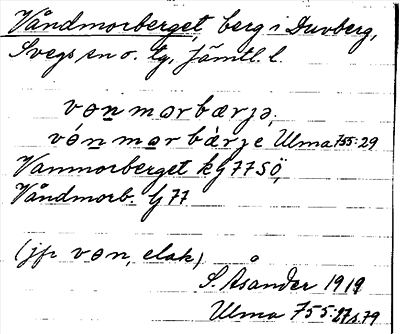 Våndmorberget, berg i Duvberg,
Svegs sn o. tg, Jämtl. l.
vɘn mɘr bærjɘ,
vó̤n mɘr bàrje Ulma 755:29
Vanmorberget kG 77 SÖ,
Våndmorb. G 77
(jfr vɘn, elak)
S. Åsander 1919
Ulma 755:27 s. 79